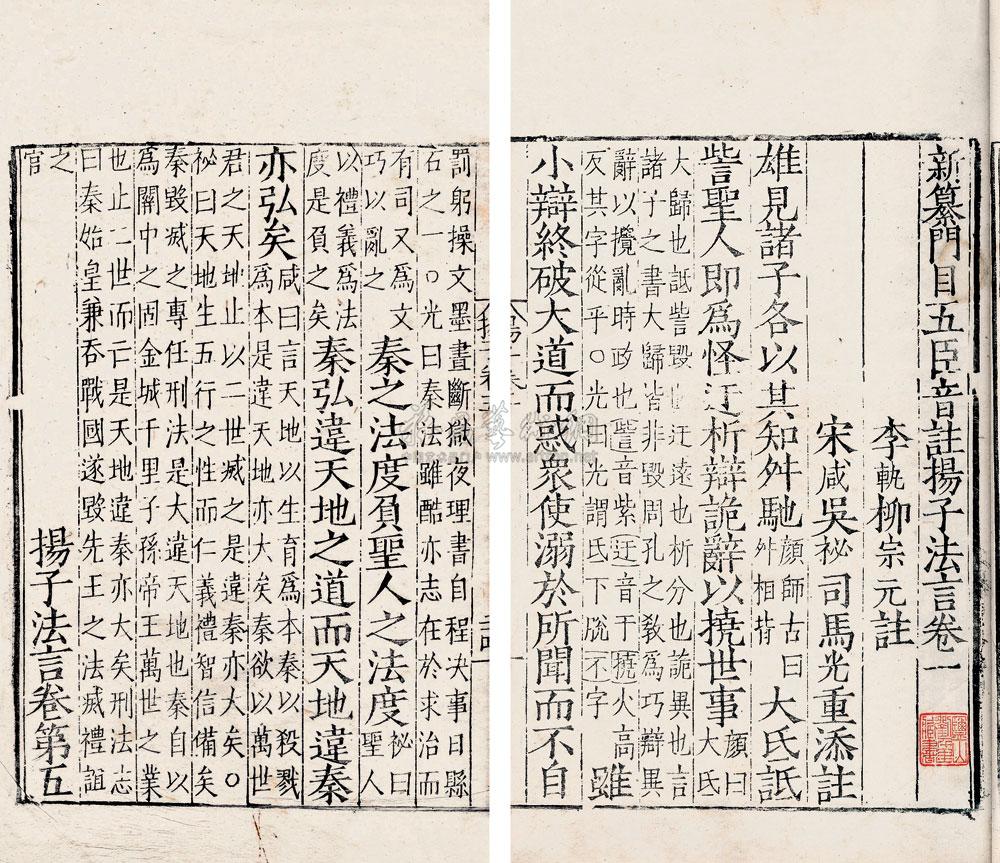 新纂門目五臣音註揚子法言卷一
李軌柳宗元註
宋咸吳祕司馬光重添註
雄見諸子各以其知舛馳顏師古曰舛相背大氐詆
訾聖人即爲怪迂析辯詭辭以撓世事顏曰大氐
大歸也詆訾毀也迂遠也析分也詭異也言
諸子之書大歸皆非毀周孔之敎爲巧辯異
辭以攪亂時政也訾音紫迂音于撓火高
反其字從手○光曰光謂氐下脫不字雖
小辯終破大道而惑衆使溺於所聞而不自
罰躬操文墨晝斷獄夜理書自程决事日縣
石之一○光曰秦法雖酷亦志在於求治而
有司又爲文巧以亂之秦之法度負聖人之法度祕曰聖人
以禮義爲法度是負之矣秦弘違天地之道而天地違秦
亦弘矣咸曰言天地以生育爲本秦以殺戮爲本是違天地亦大矣秦欲以萬世
君之天地止以二世滅之是違秦亦大矣○
祕曰天地生五行之性而仁義禮智信備矣
秦毀滅之專任刑法是大違天地也秦自以
爲關中之固金城千里子孫帝王萬世之業
也止二世而亡是天地違秦亦大矣刑法志
曰秦始皇兼吞戰國遂毀先王之法滅禮誼
之
官
揚子法言卷第五